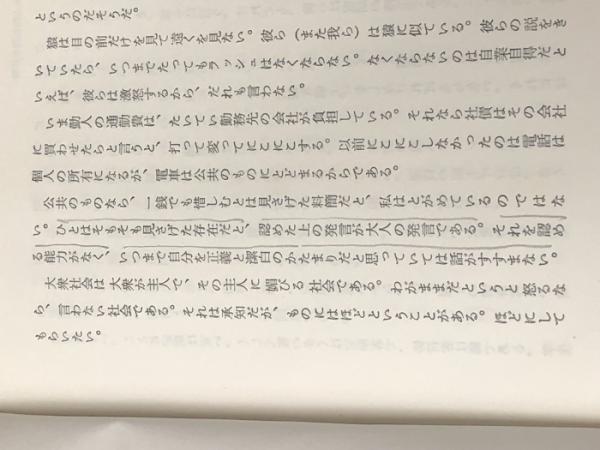 というのだそうだ。
猿は目の前だけを見て遠くを見ない。彼ら(また我ら)は猿に似ている。彼らの説をき
いていたら、いつまでたってもラッシュはなくならない。なくならないのは自業自得だと
いえば、彼らは激怒するから、だれも言わない。
いま勤人の通勤費は、たいてい勤務先の会社が負担している。それなら社債はその会社
に買わせたらと言うと、打って変ってにこにこする。以前にこにこしなかったのは電話は
個人の所有になるが、電車は公共のものにとどまるからである。
公共のものなら、一銭でも惜しむとは見さげた料簡だと、私はとがめているのではな
い。ひとはそもそも見さげた存在だと、認めた上の発言が大人の発言である。それを認め
る能力がなく、いつまで自分を正義と潔白のかたまりだと思っていては話がすすまない。
大衆社会は大衆が主人で、その主人に媚びる社会である。わがままだというと怒るな
ら、言わない社会である。それは承知だが、ものにはほどということがある。ほどにして
もらいたい。